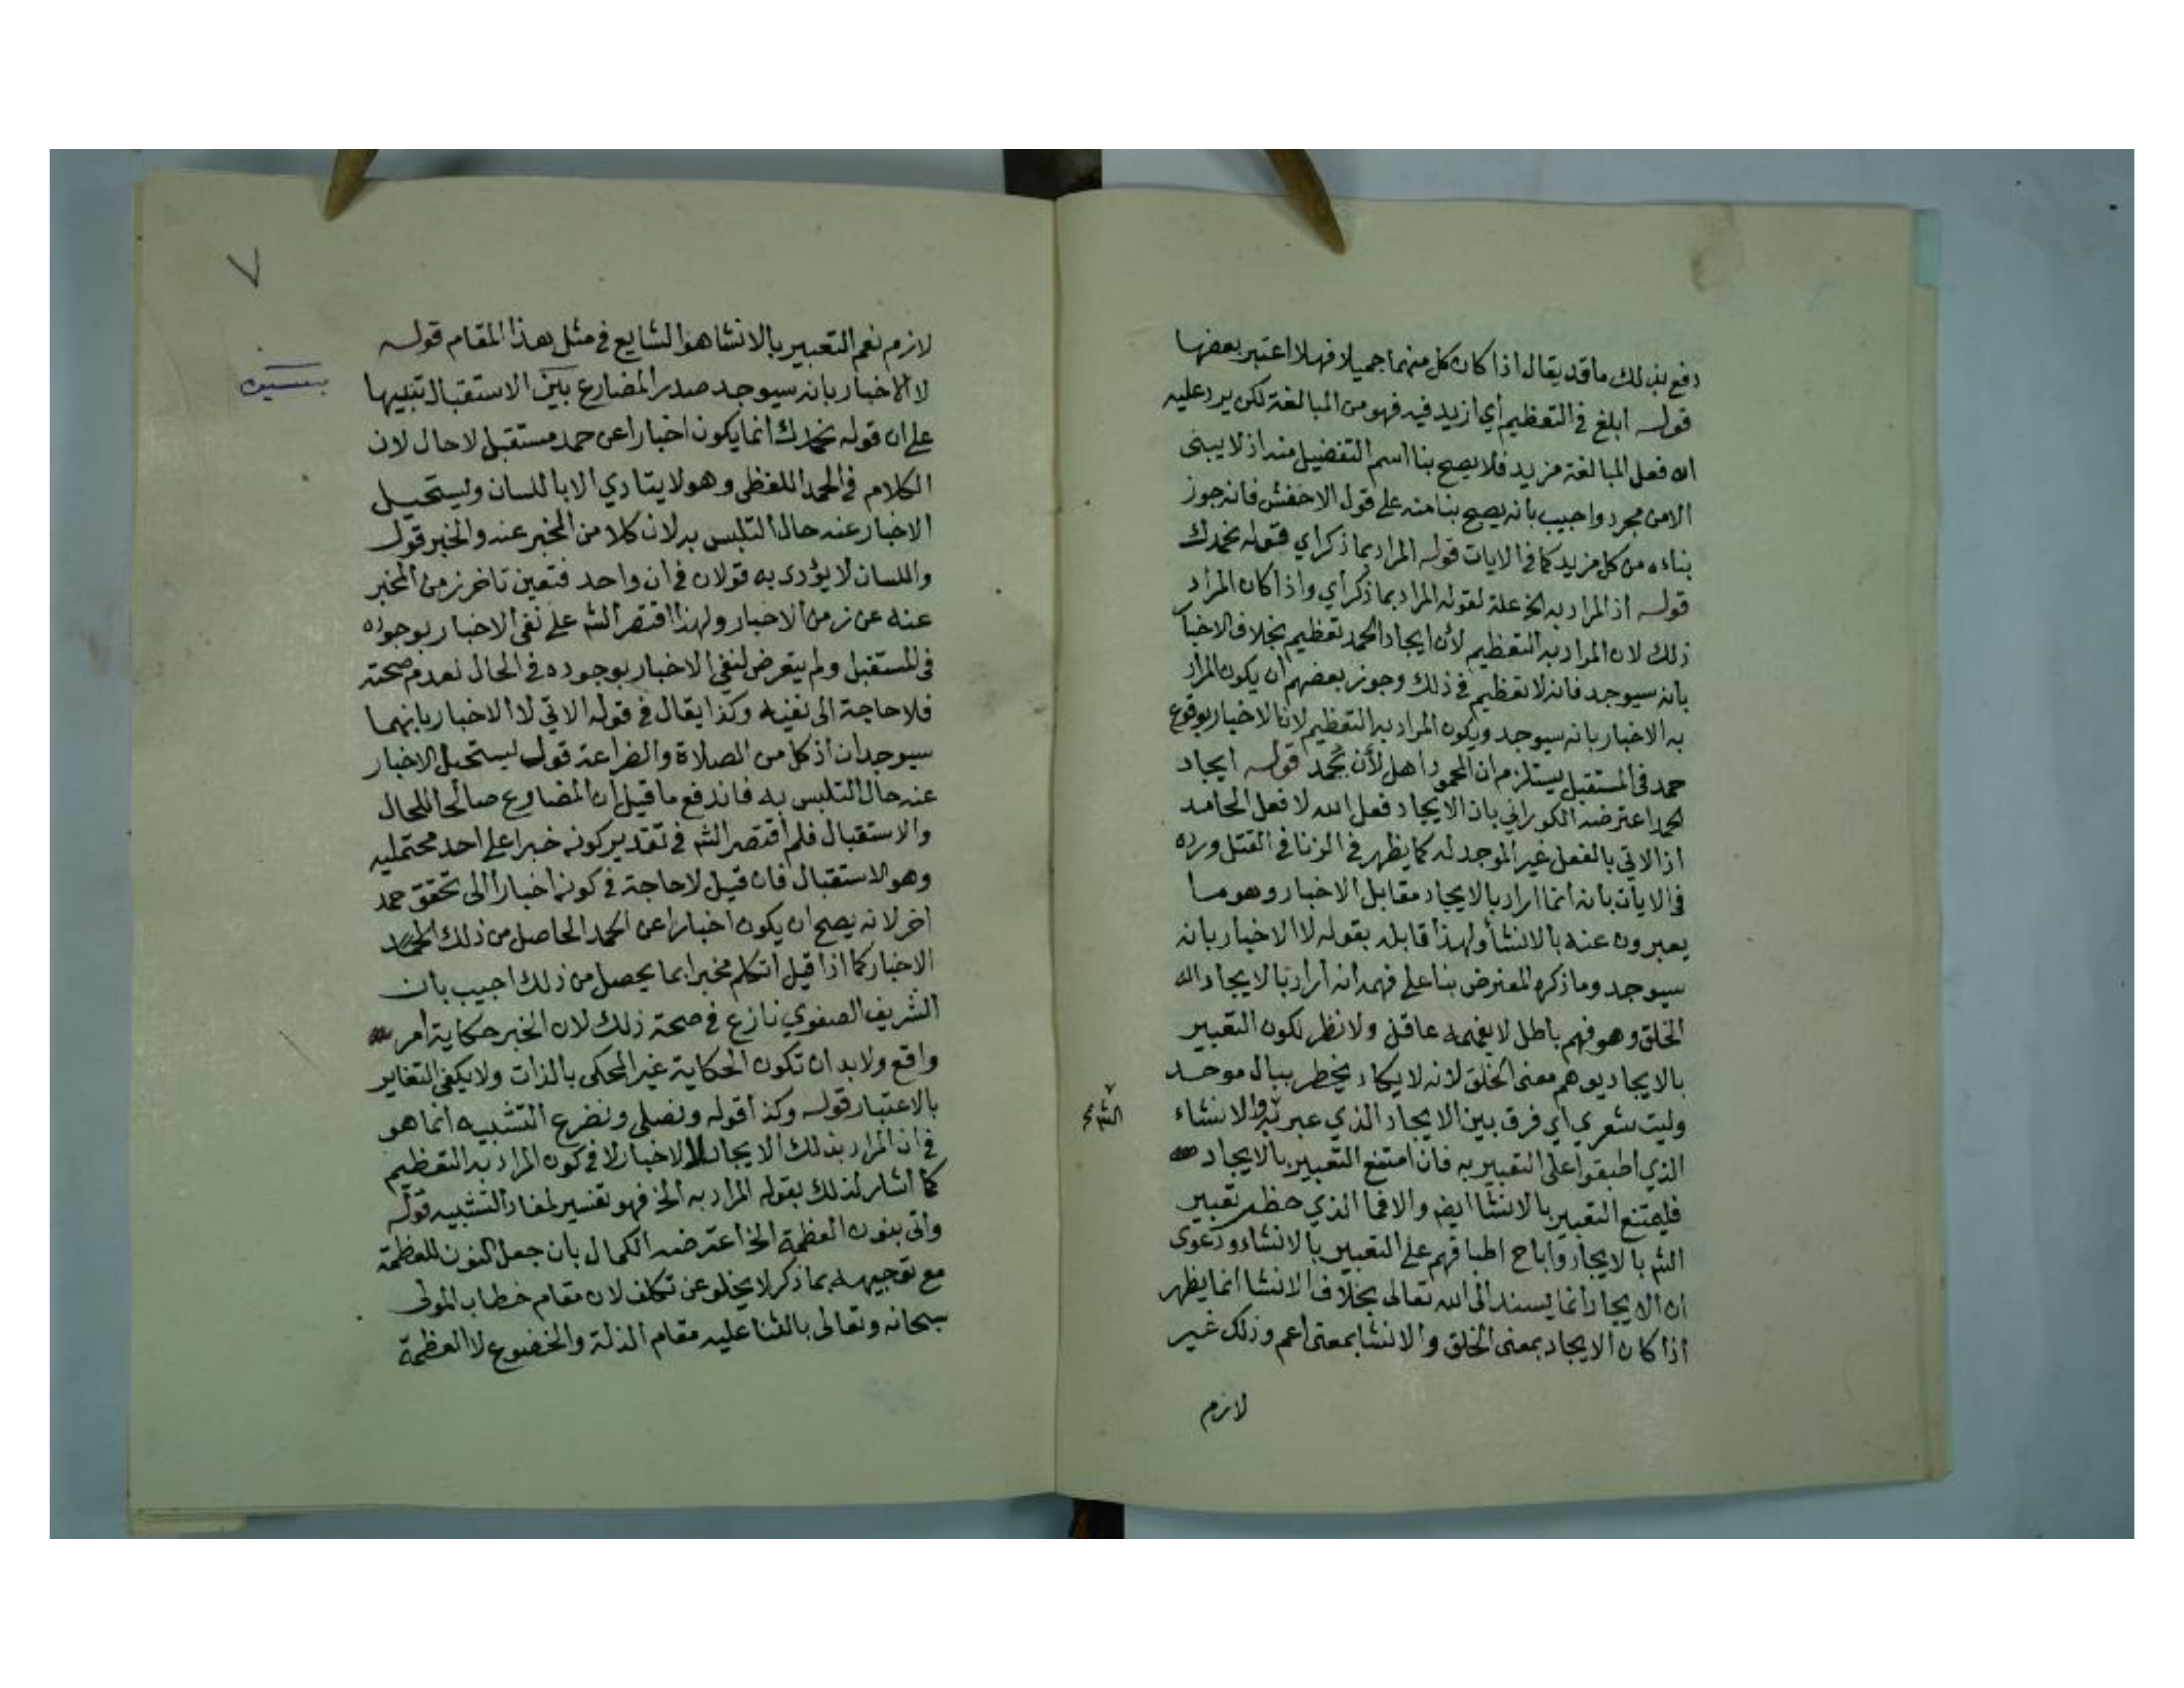 دفع بذلك ما قد يقال اذا كان كل منهما جميلا فهلا اعتبر بعضها
قوله ابلغ في التعظيم أي ازيد فيه فهو من المبالغة لكن يرد عليه
ان فعل المبالغة مزيد فلا يصح بنا اسم التفضيل منه اذ لا يبنى
الا من مجرد واجيب بانه يصح بنا منه على قول الاخفش فانه جوز
بناءه من كل مزيد كما في الايات قوله المراد بما ذكر اي قوله نحمدك
قوله اذ المراد به الخ علة لقوله المراد بما ذكر أي واذا كان المراد
ذلك لان المراد به التعظيم لأن ايجاد الحمد تعظيم بخلاف الاخبا
بانه سيوجد فانه لا تعظيم في ذلك وجوز بعضهم ان يكون المراد
به الاخبار بانه سيوجد ويكون المراد به التعظيم لانا الاخبار بوقوع
حمد في المستقبل يستلزم ان المحمود اهل لأن يحمد قوله ايجاد
الحمد اعترضه الكوراني بان الايجاد فعل الله لا فعل الحامد
اذ الاتي بالفعل غير الموجد له كما يظهر في الزنا في القتل ورده
في الايات بانه انما اراد بالايجاد مقابل الاخبار وهو ما
يعبرون عنه بالانشأ ولهذا قابله بقوله لا الاخبار بانه
سيوجد وما ذكره المعترض بنا على فهمه انه اراد بالايجاد الله
الخلق وهو فهم باطل لا يفهمه عاقل ولا نظر لكون التعبير
بالايجاد يوهم معنى الخلق لانه لا يكاد يخطر ببال موحد
وليت شعري اي فرق بين الايجاد الذي عبر به والانشاء
الشم صح
الذي اطبقوا على التعبير به فان امتنع التعبير بالايجاد
فليمتنع التعبير بالانشا ايضا والا فما الذي حظر تعبير
الشم بالايجاد واباح اطباقهم على التعبير بالانشاء ودعوى
ان الايجاد انما يسند الى الله تعالى بخلاف الانشا انما يظهر
اذا كان الايجاد بمعنى الخلق والانشا بمعنى اعم وذلك غير
لازم
٧
لازم نعم التعبير بالانشا هو الشايع في مثل هذا المقام قوله
لا الاخبار بانه سيوجد صدر المضارع بين الاستقبال تنبيها
بسين
على ان قوله نحمدك انما يكون اخبارا عن حمد مستقبل لا حال لان
الكلام في الحمد اللفظي وهو لا يتادي الا باللسان ويستحيل
الاخبار عنه حال التلبس به لان كلا من المخبر عنه والخبر قول
واللسان لا يؤدى به قولان في ان واحد فتعين تاخر زمن المخبر
عنه عن زمن الاخبار ولهذا اقتصر الشم على نفي الاخبار بوجوده
في المستقبل ولم يتعرض لنفي الاخبار بوجوده في الحال لعدم صحته
فلا حاجة الى نفيه وكذا يقال في قوله الاتي لا الاخبار بانهما
سيوجدان اذ كل من الصلاة والضراعة قول يستحيل الاخبار
عنه حال التلبس به فاندفع ما قيل ان المضارع صالحا للحال
والاستقبال فلم اقتصر الشم في تقدير كونه خبرا على احد محتمليه
وهو الاستقبال فان قيل لا حاجة في كونه اخبارا الى تحقق حمد
اخر لانه يصح ان يكون اخبارا عن الحمد الحاصل من ذلك
الاخبار كما اذا قيل اتكلم مخبرا بما يحصل من ذلك اجيب بان
الشريف الصفوي نازع في صحة ذلك لان الخبر حكاية امر
واقع ولا بد ان تكون الحكاية غير المحكى بالذات ولا يكفي التغاير
بالاعتبار قوله وكذا قوله ونصلي ونضرع التشبيه انما هو
في ان المراد بذلك الايجاد لا الاخبار لا في كون المراد به التعظيم
كما اشار لذلك بقوله المراد به الخ فهو تفسير لمفاد التشبيه قوله
واتى بنون العظمة الخ اعترضه الكمال بان جعل النون للعظمة
مع توجيهه بما ذكر لا يخلو عن تكلف لان مقام خطاب المولى
سبحانه وتعالى بالثنا عليه مقام الذلة والخضوع لا العظمة